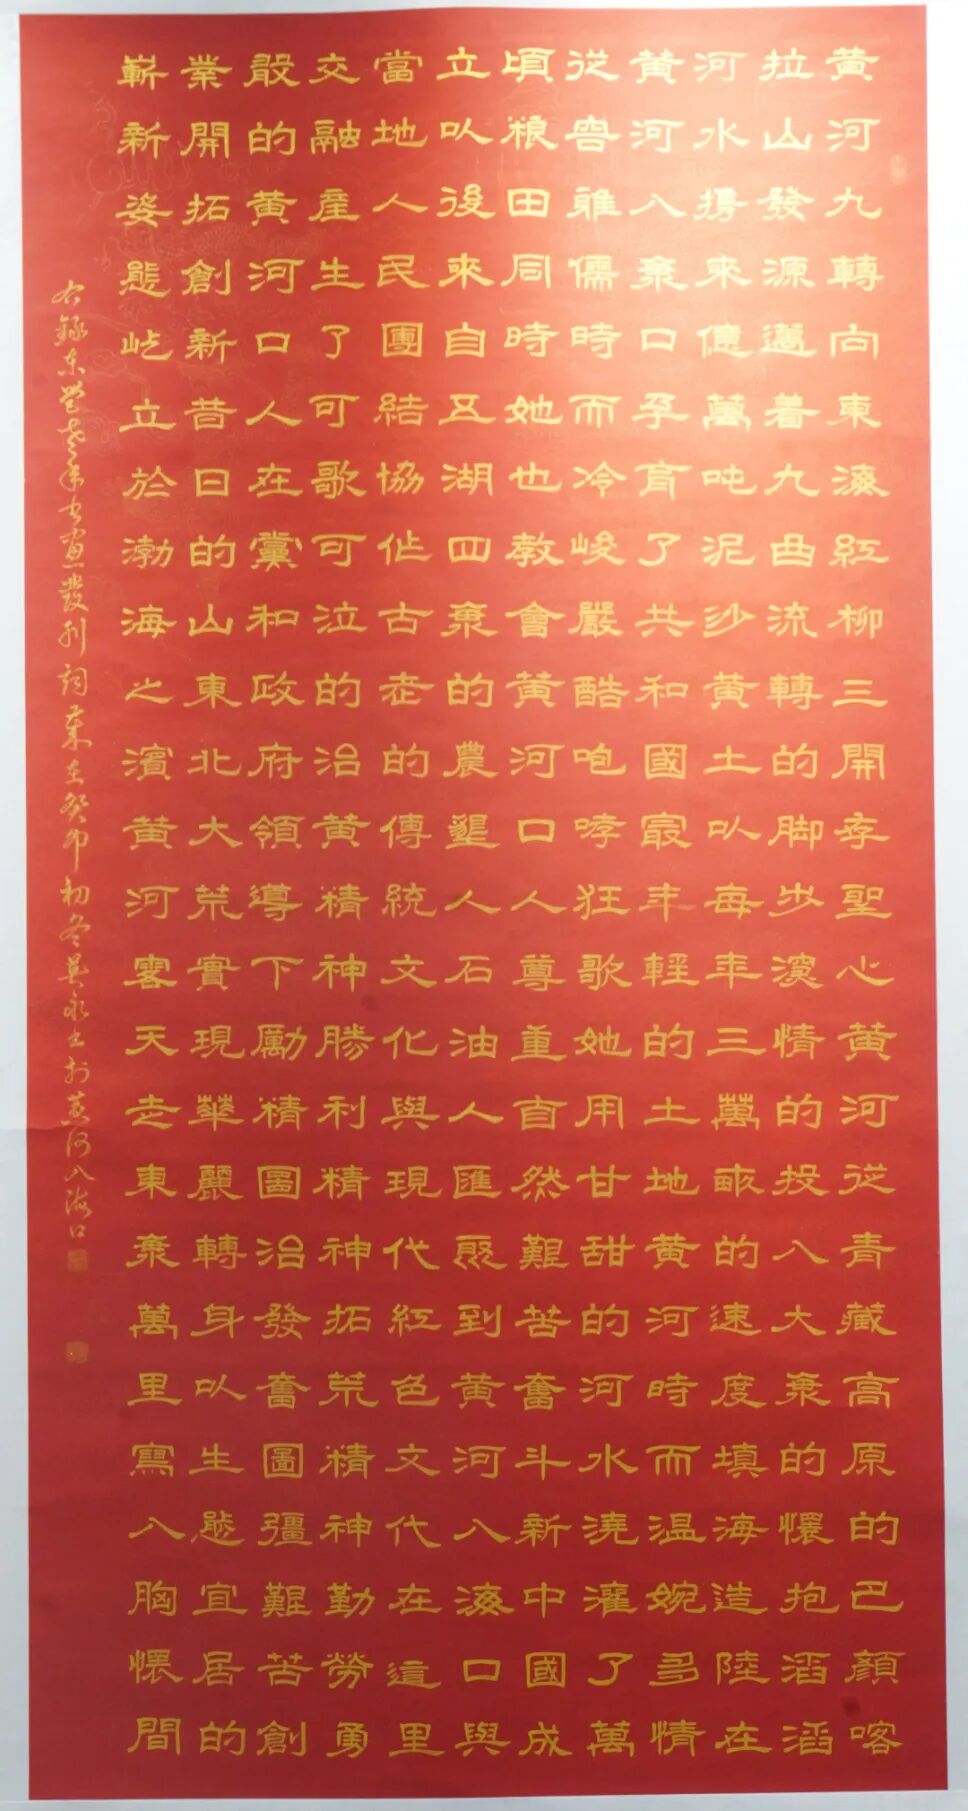 黄河九轉向東瀛紅柳三開存聖心黄河從青藏高原的巴顏喀
拉山發源邁着九曲流轉的脚步深情的投入大海的懷抱滔滔
河水攜來億萬吨泥沙黄土以每年三萬畝的速度填海造陸在
黄河入海口孕育了共和國最年輕的土地黄河時而温婉多情
從容雅儒時而冷峻嚴酷咆哮狂歌她用甘甜的河水澆灌了萬
頃粮田同時她也教會黄河口人尊重自然艱苦奮斗新中國成
立以後來自五湖四海的農墾人石油人匯聚到黄河入海口與
當地人民團結協作古老的傳統文化與現代紅色文代在這里
交融産生了可歌可泣的治黄精神勝利精神拓荒精神勤勞勇
敢的黄河口人在黨和政府領導下勵精圖治發奮圖彊艱苦創
業開拓創新昔日的山東北大荒實現華麗轉身以生態宜居的
嶄新姿態屹立於渤海之濱黄河落天走東海萬里寫入胸懷間
右錄東營老年書畫叢刊詞癸卯初冬於黄河入海口